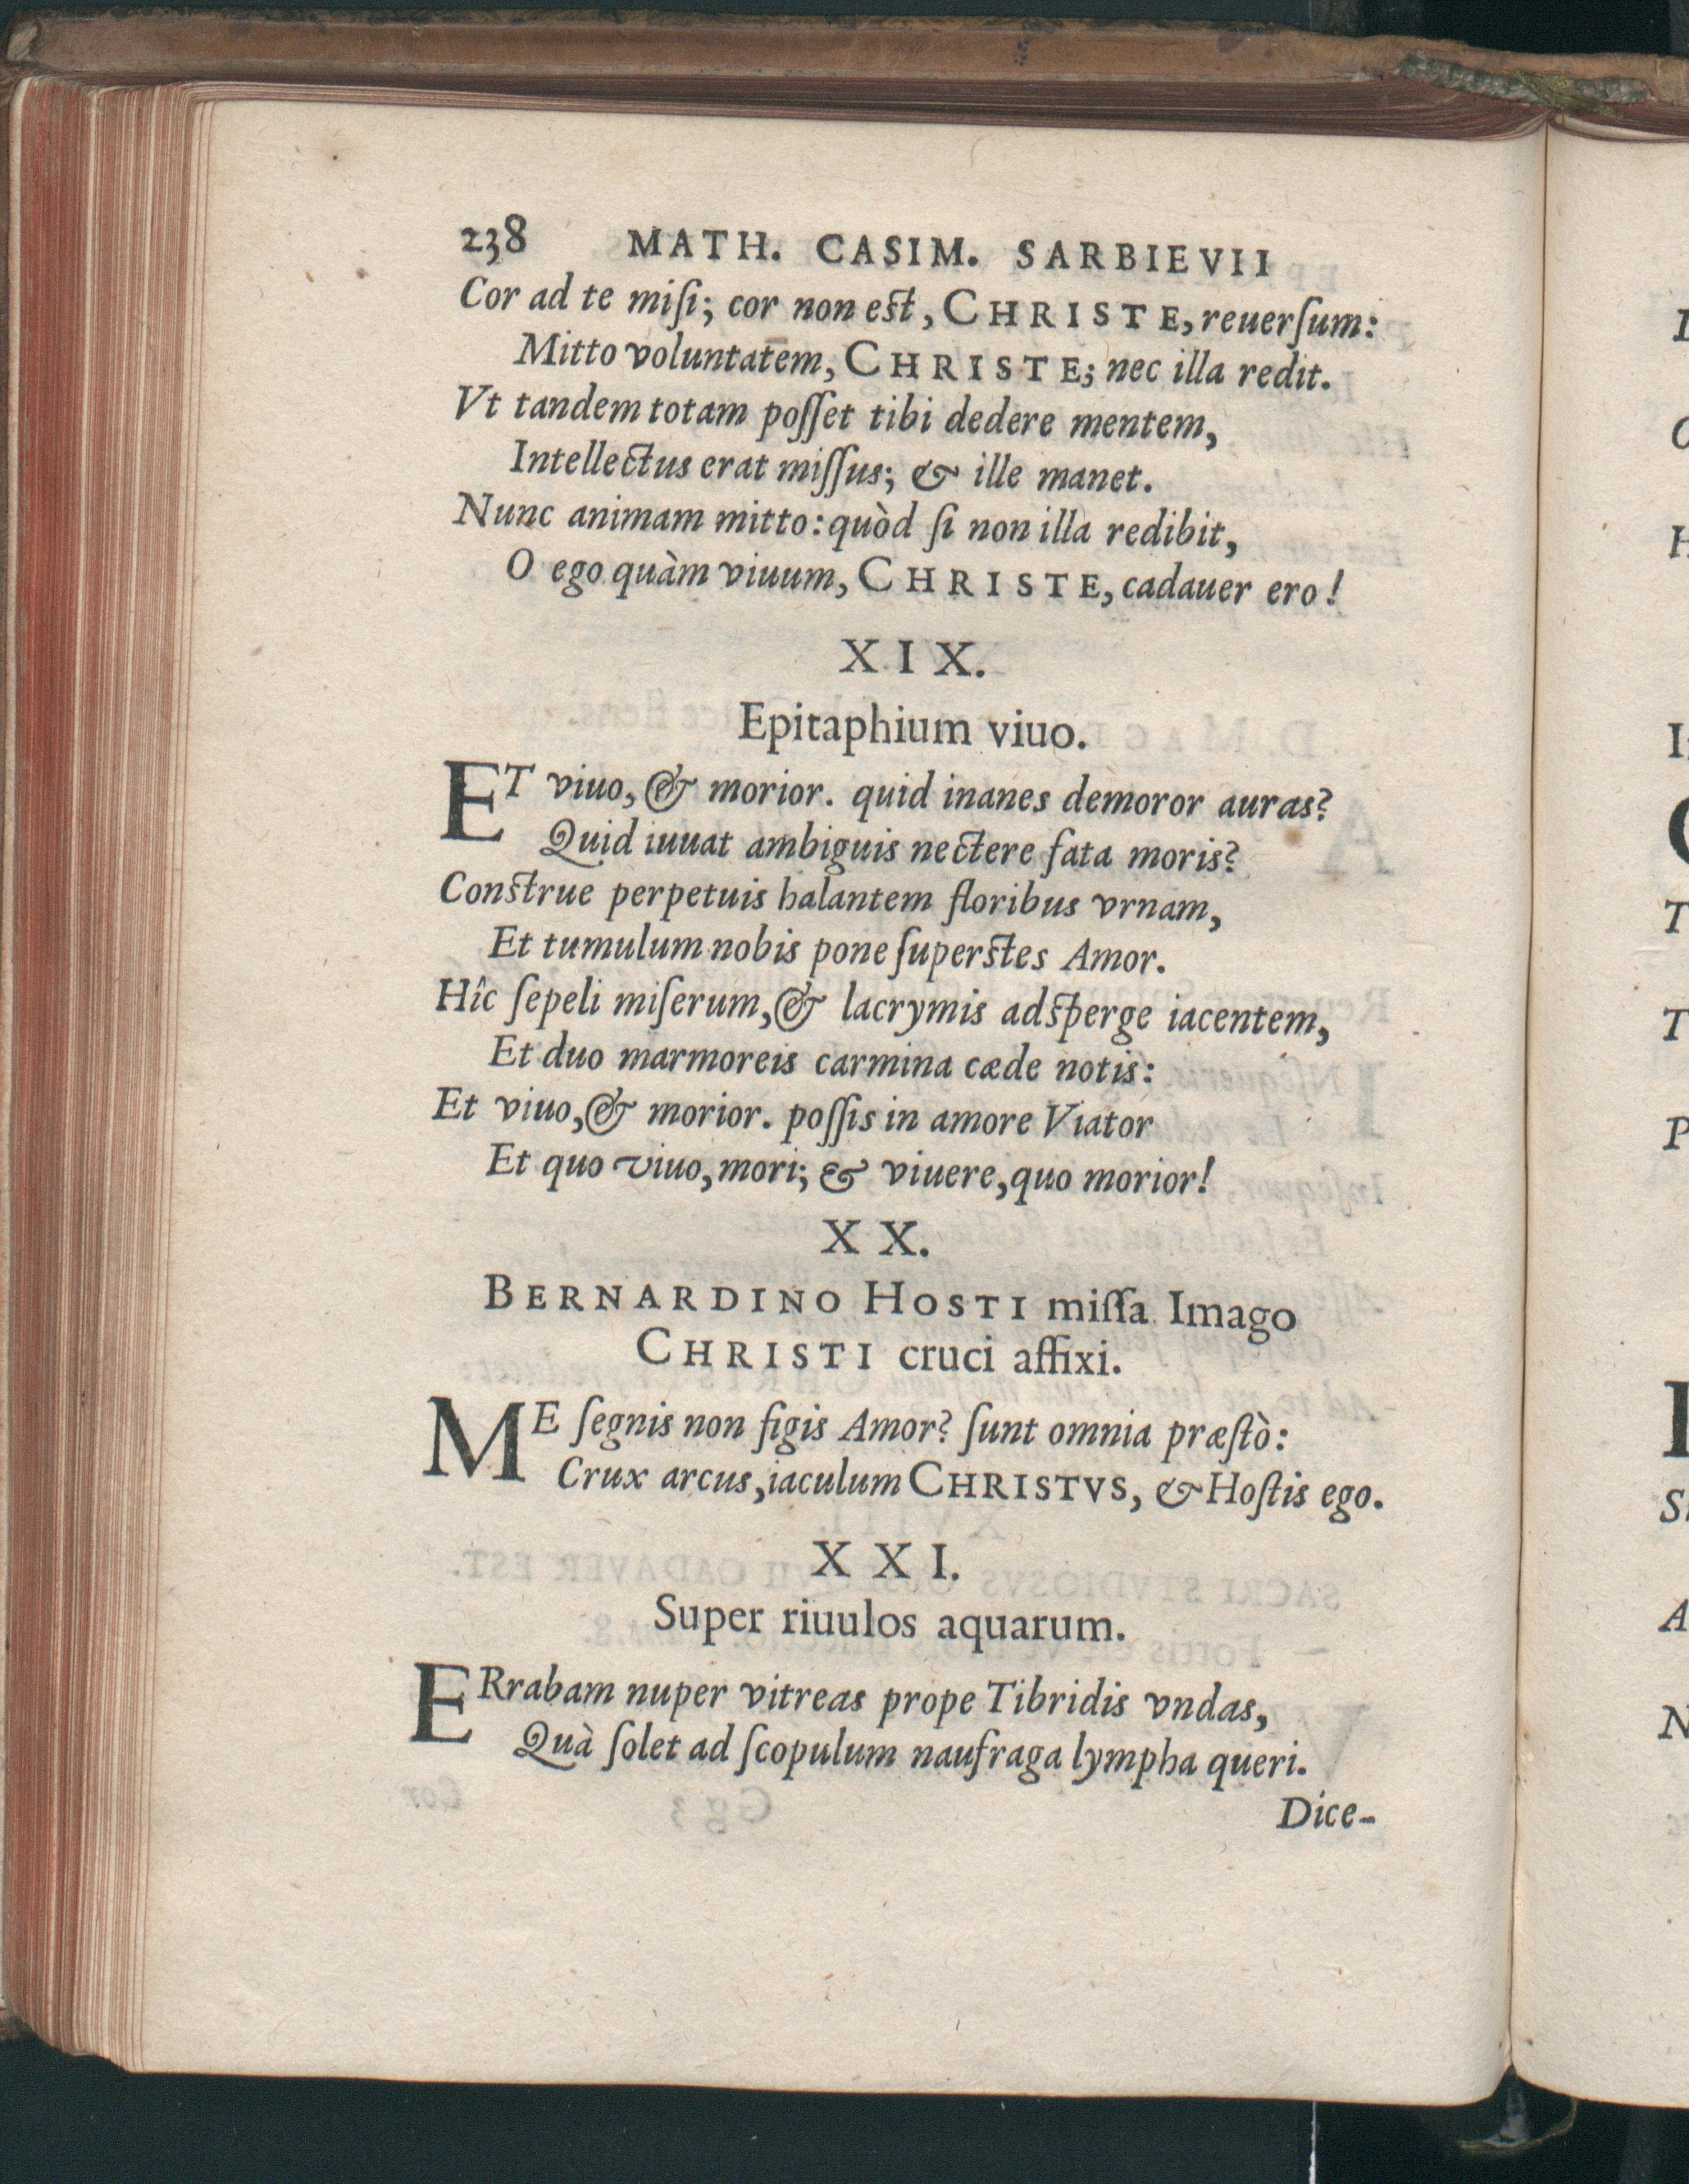 238 MATH. CASIM. SARBIEVII
Cor ad te miſi; cor non est, CHRISTE, reuerſum:
Mitto voluntatem, CHRISTE; nec illa redit.
Vt tandem totam poſſet tibi dedere mentem,
Intellectus erat miſſus; & ille manet.
Nunc animam mitto: quòd ſi non illa redibit,
O ego quàm viuum, CHRISTE, cadauer ero!
XIX.
Epitaphium viuo.
ET viuo, & morior. quid inanes demoror auras?
Quid iuuat ambiguis nectere fata moris?
Construe perpetuis halantem floribus vrnam,
Et tumulum nobis pone ſuperstes Amor.
Hîc ſepeli miſerum, & lacrymis adsperge iacentem,
Et duo marmoreis carmina cæde notis:
Et viuo, & morior. poſſis in amore Viator
Et quo viuo, mori; & viuere, quo morior!
XX.
BERNARDINO HOSTI miſſa Imago
CHRISTI cruci affixi.
ME ſegnis non figis Amor? ſunt omnia præſtò:
Crux arcus, iaculum CHRISTVS, & Hoſtis ego.
XXI.
Super riuulos aquarum.
ERrabam nuper vitreas prope Tibridis vndas,
Quà ſolet ad ſcopulum naufraga lympha queri.
Dice-